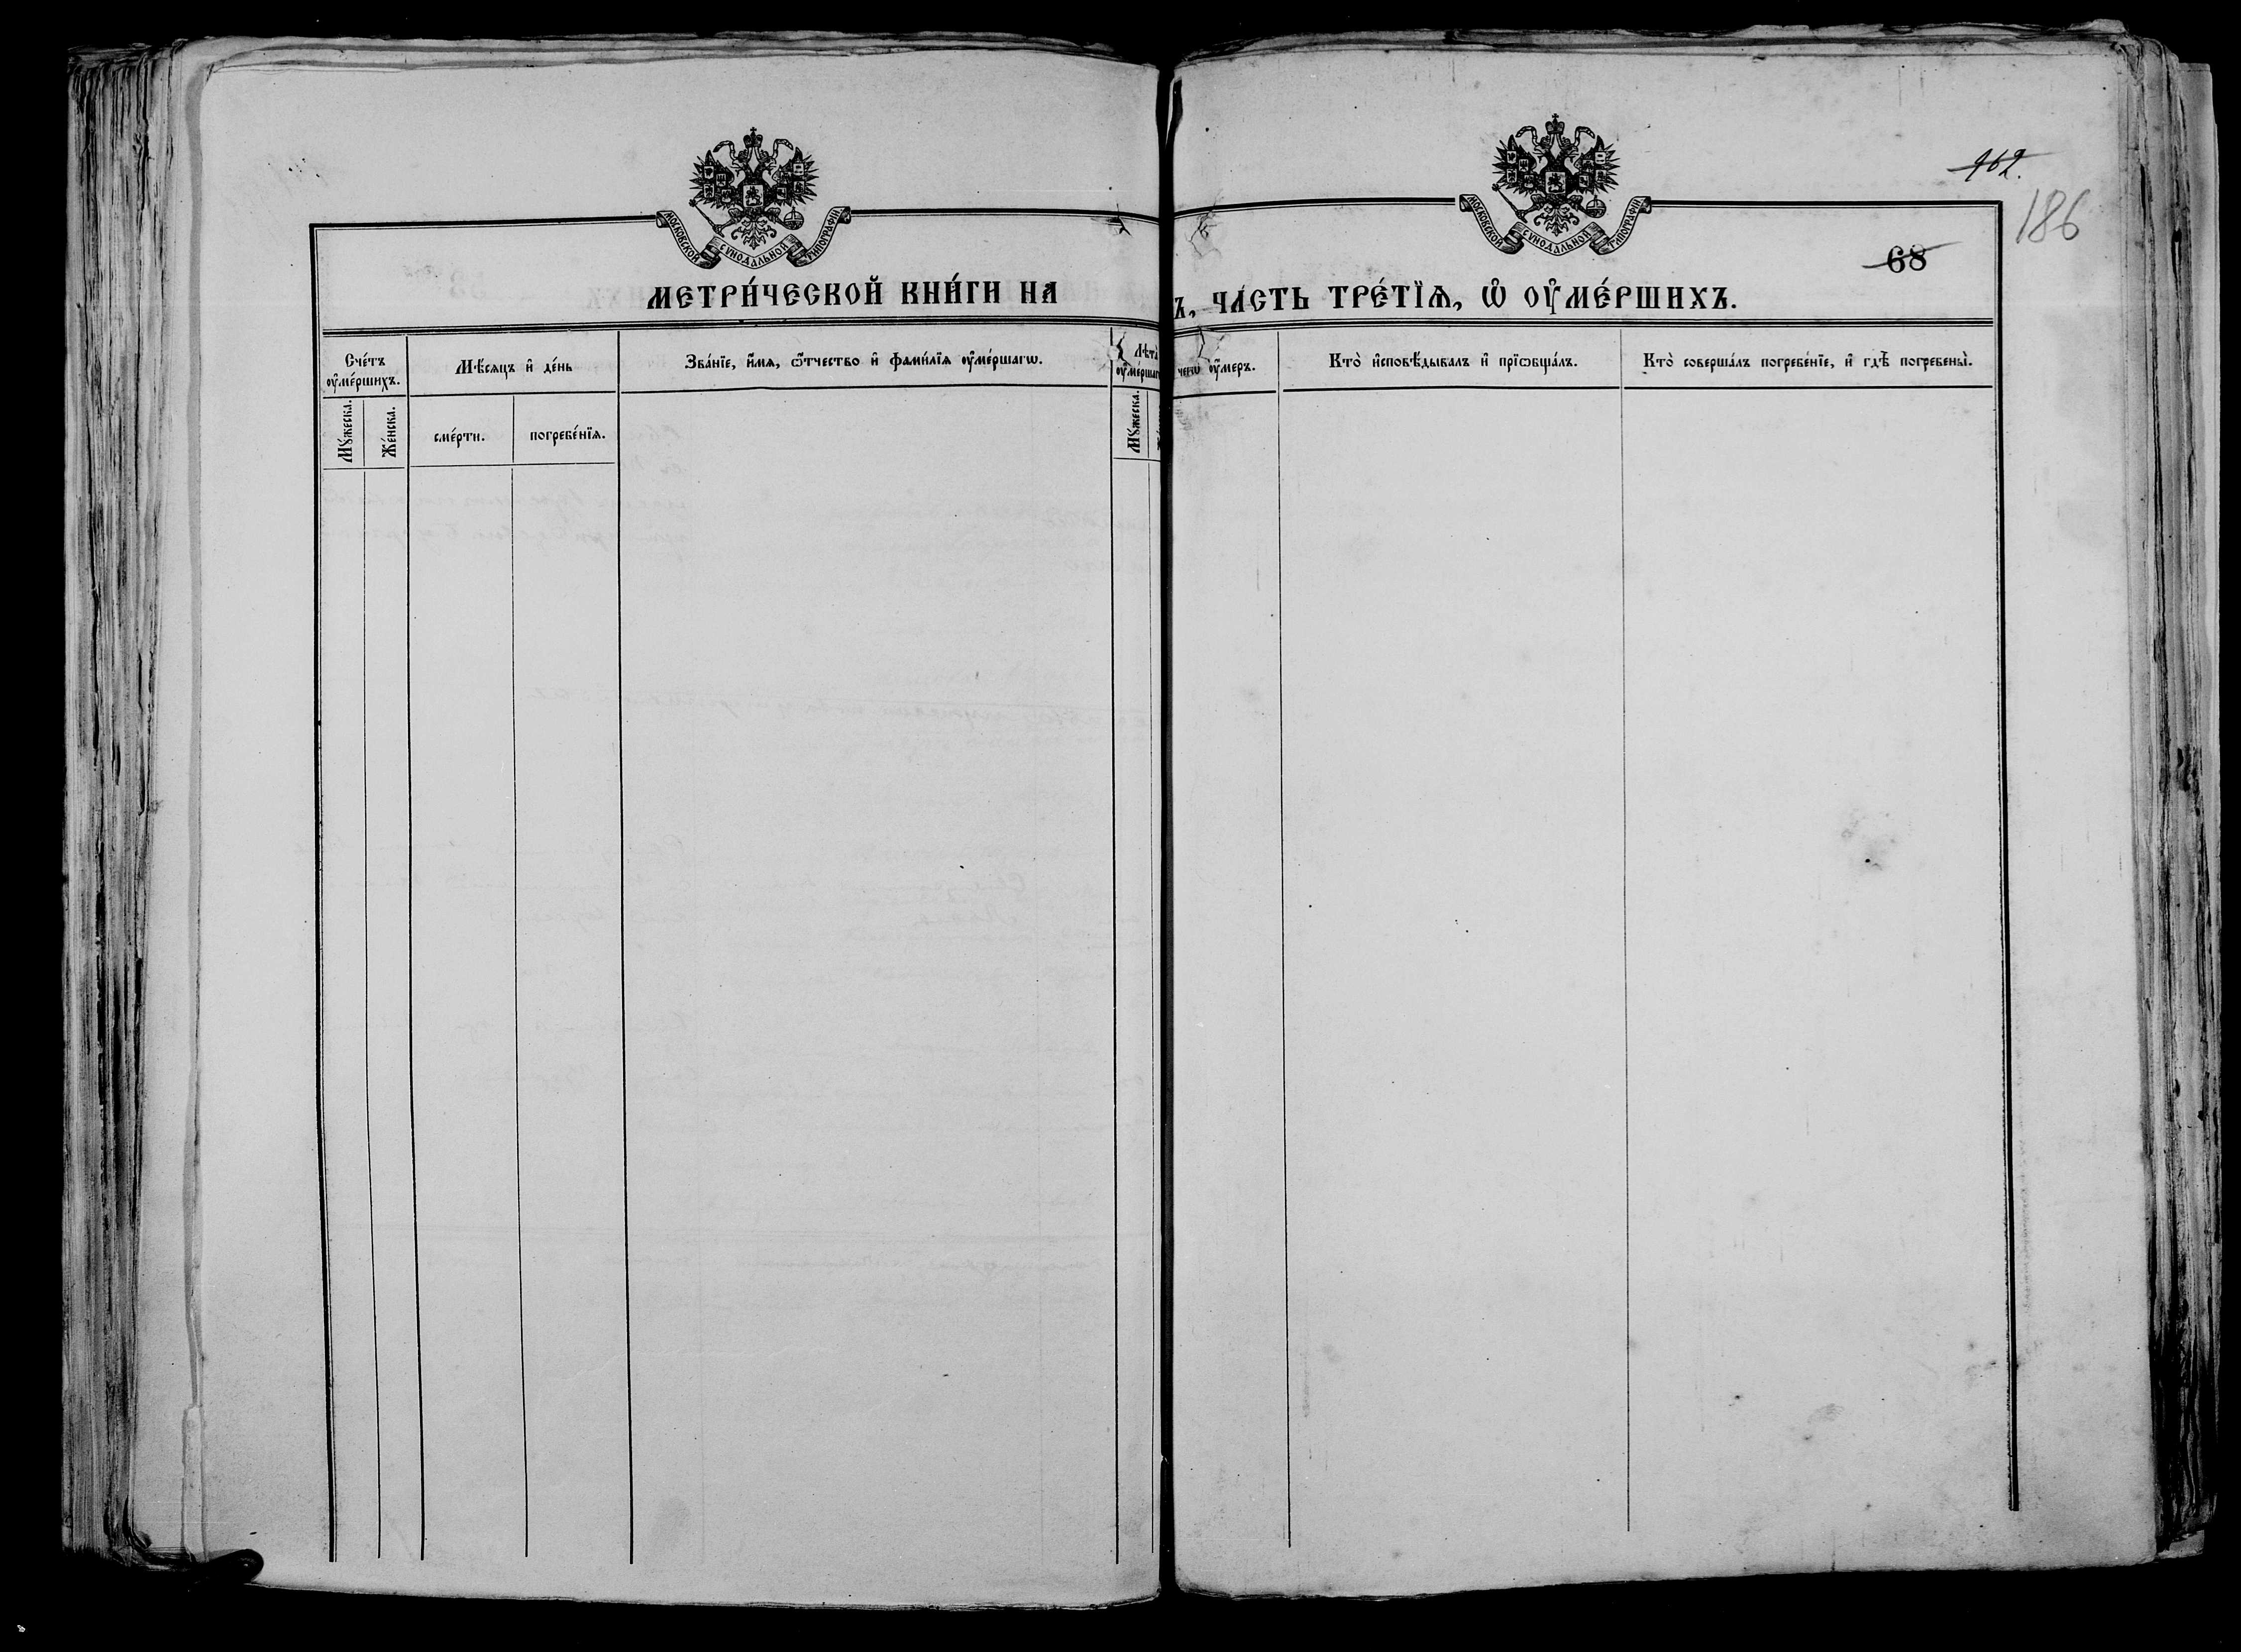 962.
186
МОСКОВСКОЙ СѴНОДАЛЬНОЙ ТИПОГРАФІИ
МОСКОВСКОЙ СѴНОДАЛЬНОЙ ТИПОГРАФІИ
68
МЕТРИ́ЧЕСКОЙ КНИ́ГИ НА
Ъ, ЧА́СТЬ ТРЕ́ТЇѦ, Ѽ ОУ҆МЕ́РШИХЪ.
Сче́тъ
оу҆ме́ршихъ.
Мѣ́сяцъ и҆ де́нь
Зва́нїе, и҆́мя, ѻ҆́тчество и҆ фами́лїя оу҆ме́ршагѡ.
Лѣта̀
оу҆ме́ршаг
чегѡ оу҆́меръ.
Кто̀ и҆сповѣ́дывалъ и҆ прїѡбща́лъ.
Кто̀ соверша́лъ погребе́нїе, и҆ гдѣ̀ погребены̀.
Мꙋ́жеска.
Же́нска.
сме́рти.
погребе́нїя.
Мꙋ́жеска.